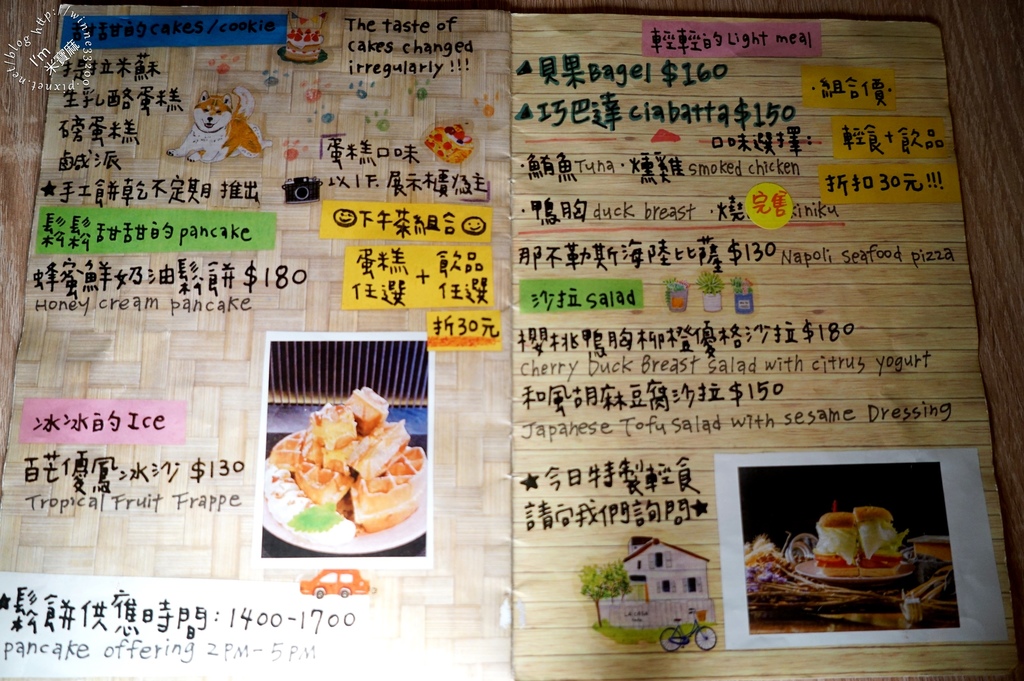 甜甜的cakes/cookie
提拉米蘇
生乳酪蛋糕
磅蛋糕
鹹派
★手工餅乾不定期推出
The taste of
cakes changed
irregularly!!!
蛋糕口味
以1F.展示櫃為主
鬆鬆甜甜的pancake
蜂蜜鮮奶油鬆餅 $180
Honey cream pancake
下午茶組合
蛋糕任選 + 飲品任選
折30元
冰冰的Ice
百芒優鳳冰沙 $130
Tropical Fruit Frappe
★鬆餅供應時間:1400-1700
pancake offering 2PM-5PM
輕輕的Light meal
▲貝果Bagel $160
▲巧巴達ciabatta$150
口味選擇:
·鮪魚Tuna·燻雞smoked chicken
·鴨胸duck breast ·燒
完售
iniku
·組合價·
輕食+飲品
折扣30元!!!
那不勒斯海陸比薩$130 Napoli seafood pizza
沙拉salad
櫻桃鴨胸柳橙優格沙拉$180
cherry Duck Breast Salad with citrus yogurt
和風胡麻豆腐沙拉$150
Japanese Tofu Salad with sesame Dressing
★今日特製輕食
請向我們詢問★
I'm
米寶麻
net/blog http://winne33200.pixnet.net/blog